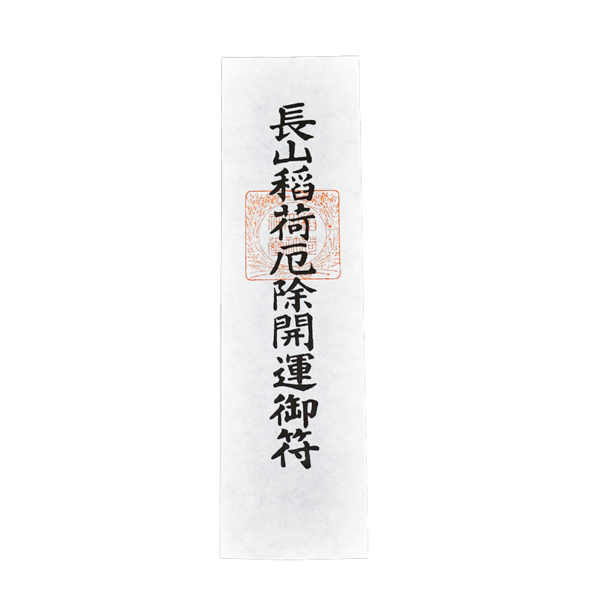 長山稲荷厄除開運御符